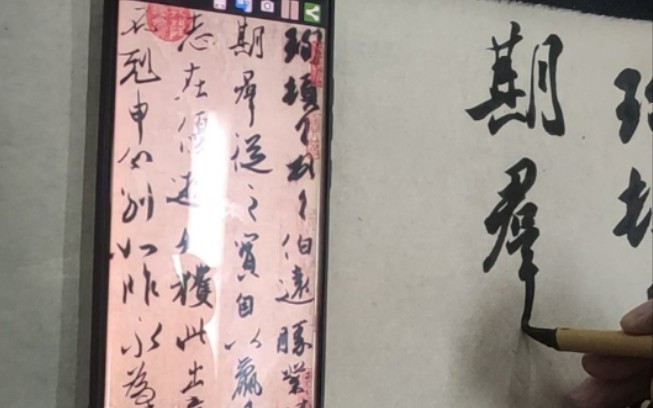 珣頓
期羣
珣頓首頓首伯遠勝業
期羣從之寶自以羸
志在優遊始獲此出
不剋申分別如昨永為